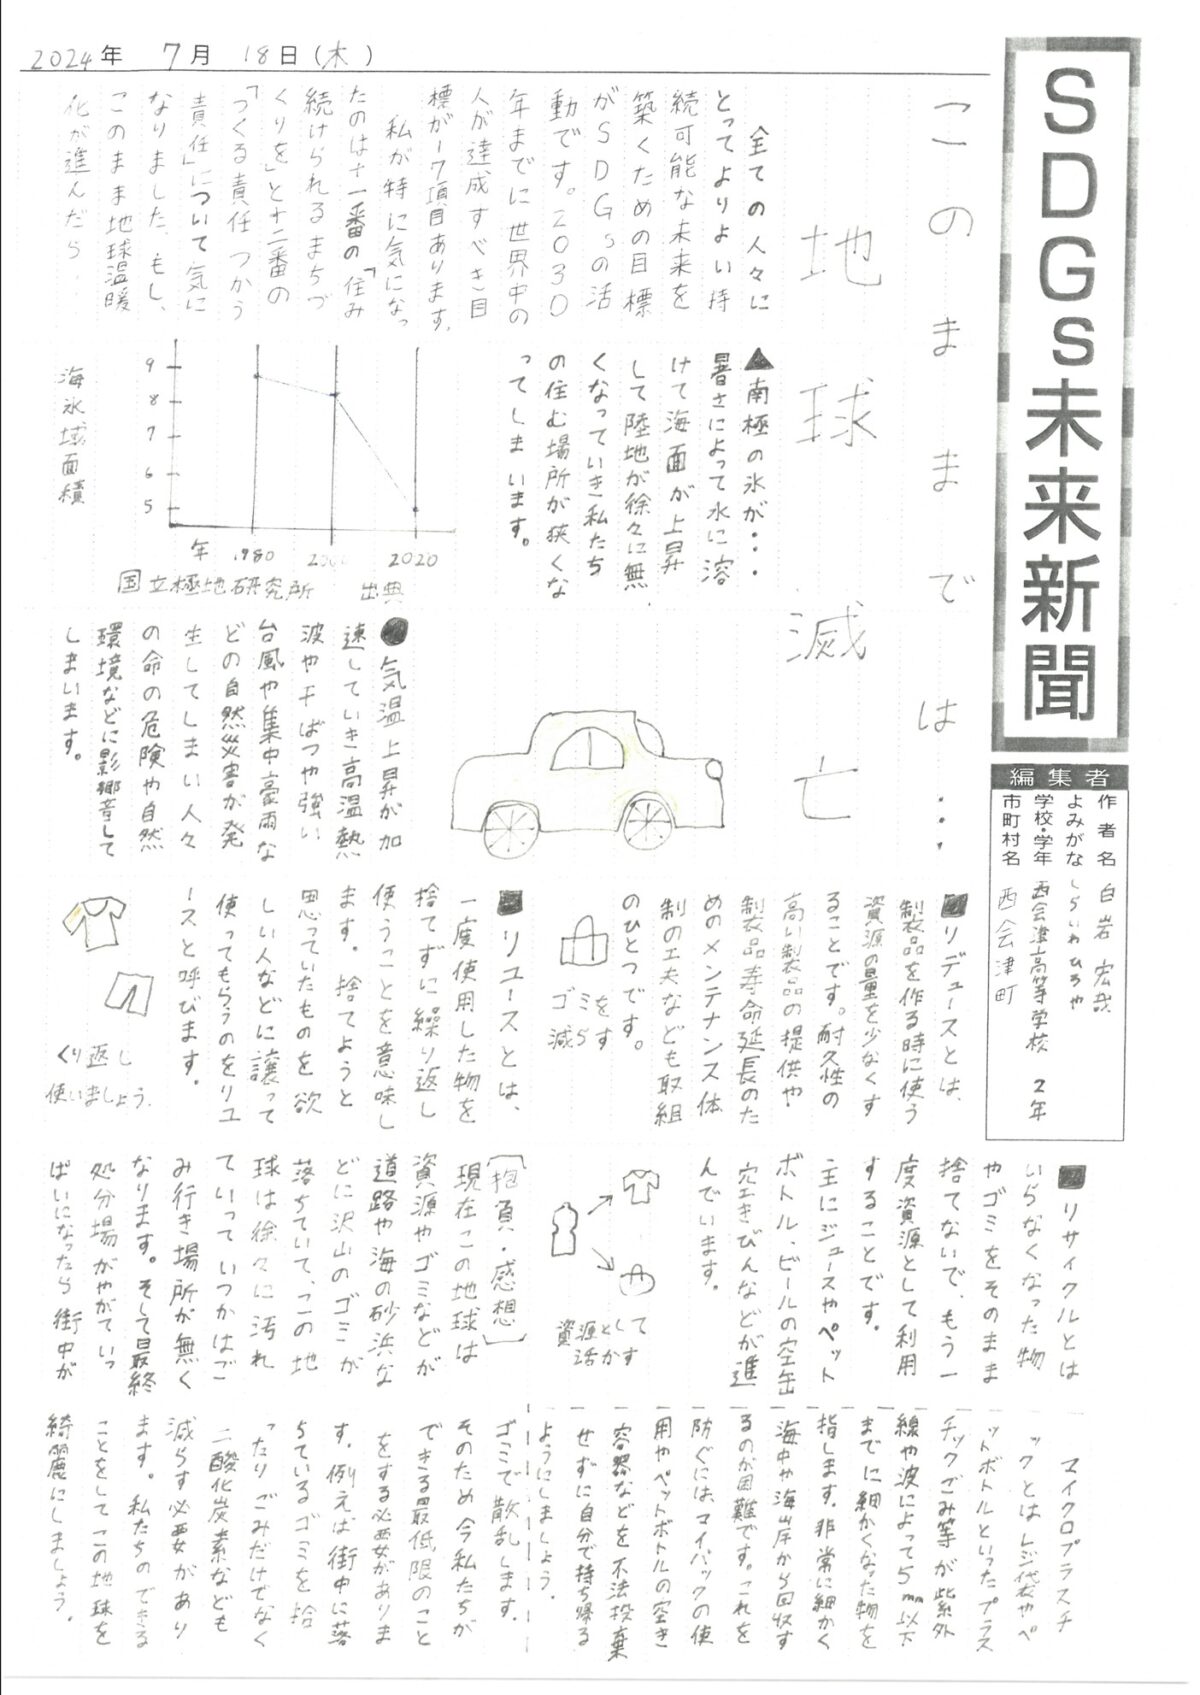 2024年 7月 18日(木)
SDGs未来新聞
編集者
作者名 白岩 宏哉
よみがな しらいわひろや
学校・学年 西会津高等学校 2年
市町村名 西会津町
このままでは…
地球滅亡
全ての人々に
とってよりよい持
続可能な未来を
築くための目標
がSDGsの活
動です。2030
年までに世界中の
人が達成すべき目
標が17項目あります。
私が特に気になっ
たのは十一番の「住み
続けられるまちづ
くりを」と十二番の
「つくる責任 つかう
責任」について気に
なりました。もし、
このまま地球温暖
化が進んだら…
▲南極の氷が・・・
暑さによって水に溶
けて海面が上昇
して陸地が徐々に無
くなっていき私たち
の住む場所が狭くな
ってしまいます。
海氷域面積
9
8
7
6
5
年 1980 2000 2020
国立極地研究所 出典
●気温上昇が加
速していき高温熱
波や干ばつや強い
台風や集中豪雨な
どの自然災害が発
生してしまい人々
の命の危険や自然
環境などに影響して
しまいます。
■リデュースとは、
製品を作る時に使う
資源の量を少なくす
ることです。耐久性の
高い製品の提供や
製品寿命延長のた
めのメンテナンス体
制の工夫なども取組
のひとつです。
ゴミを
減らす
■リユースとは、
一度使用した物を
捨てずに繰り返し
使うことを意味し
ます。捨てようと
思っていたものを欲
しい人などに譲って
使ってもらうのをリユ
ースと呼びます。
くり返し
使いましょう.
■リサイクルとは
いらなくなった物
やゴミをそのまま
捨てないで、もう一
度資源として利用
することです。
主にジュースやペット
ボトル、ビールの空缶
空きびんなどが進
んでいます。
資源として
活かす
[抱負・感想]
現在この地球は
資源やゴミなどが
道路や海の砂浜な
どに沢山のゴミが
落ちていて、この地
球は徐々に汚れ
ていっていつかはご
み行き場所が無く
なります。そして最終
処分場がやがていっ
ぱいになったら街中が
ゴミで散乱します。
そのため今私たちが
できる最低限のこと
をする必要がありま
す。例えば街中に落
ちているゴミを拾
ったりごみだけでなく
二酸化炭素なども
減らす必要があり
ます。私たちのできる
ことをしてこの地球を
綺麗にしましょう。
マイクロプラスチ
ックとはレジ袋やペ
ットボトルといったプラス
チックごみ等が紫外
線や波によって5mm以下
までに細かくなった物を
指します。非常に細かく
海中や海岸から回収す
るのが困難です。これを
防ぐには、マイバックの使
用やペットボトルの空き
容器などを不法投棄
せずに自分で持ち帰る
ようにしましょう.